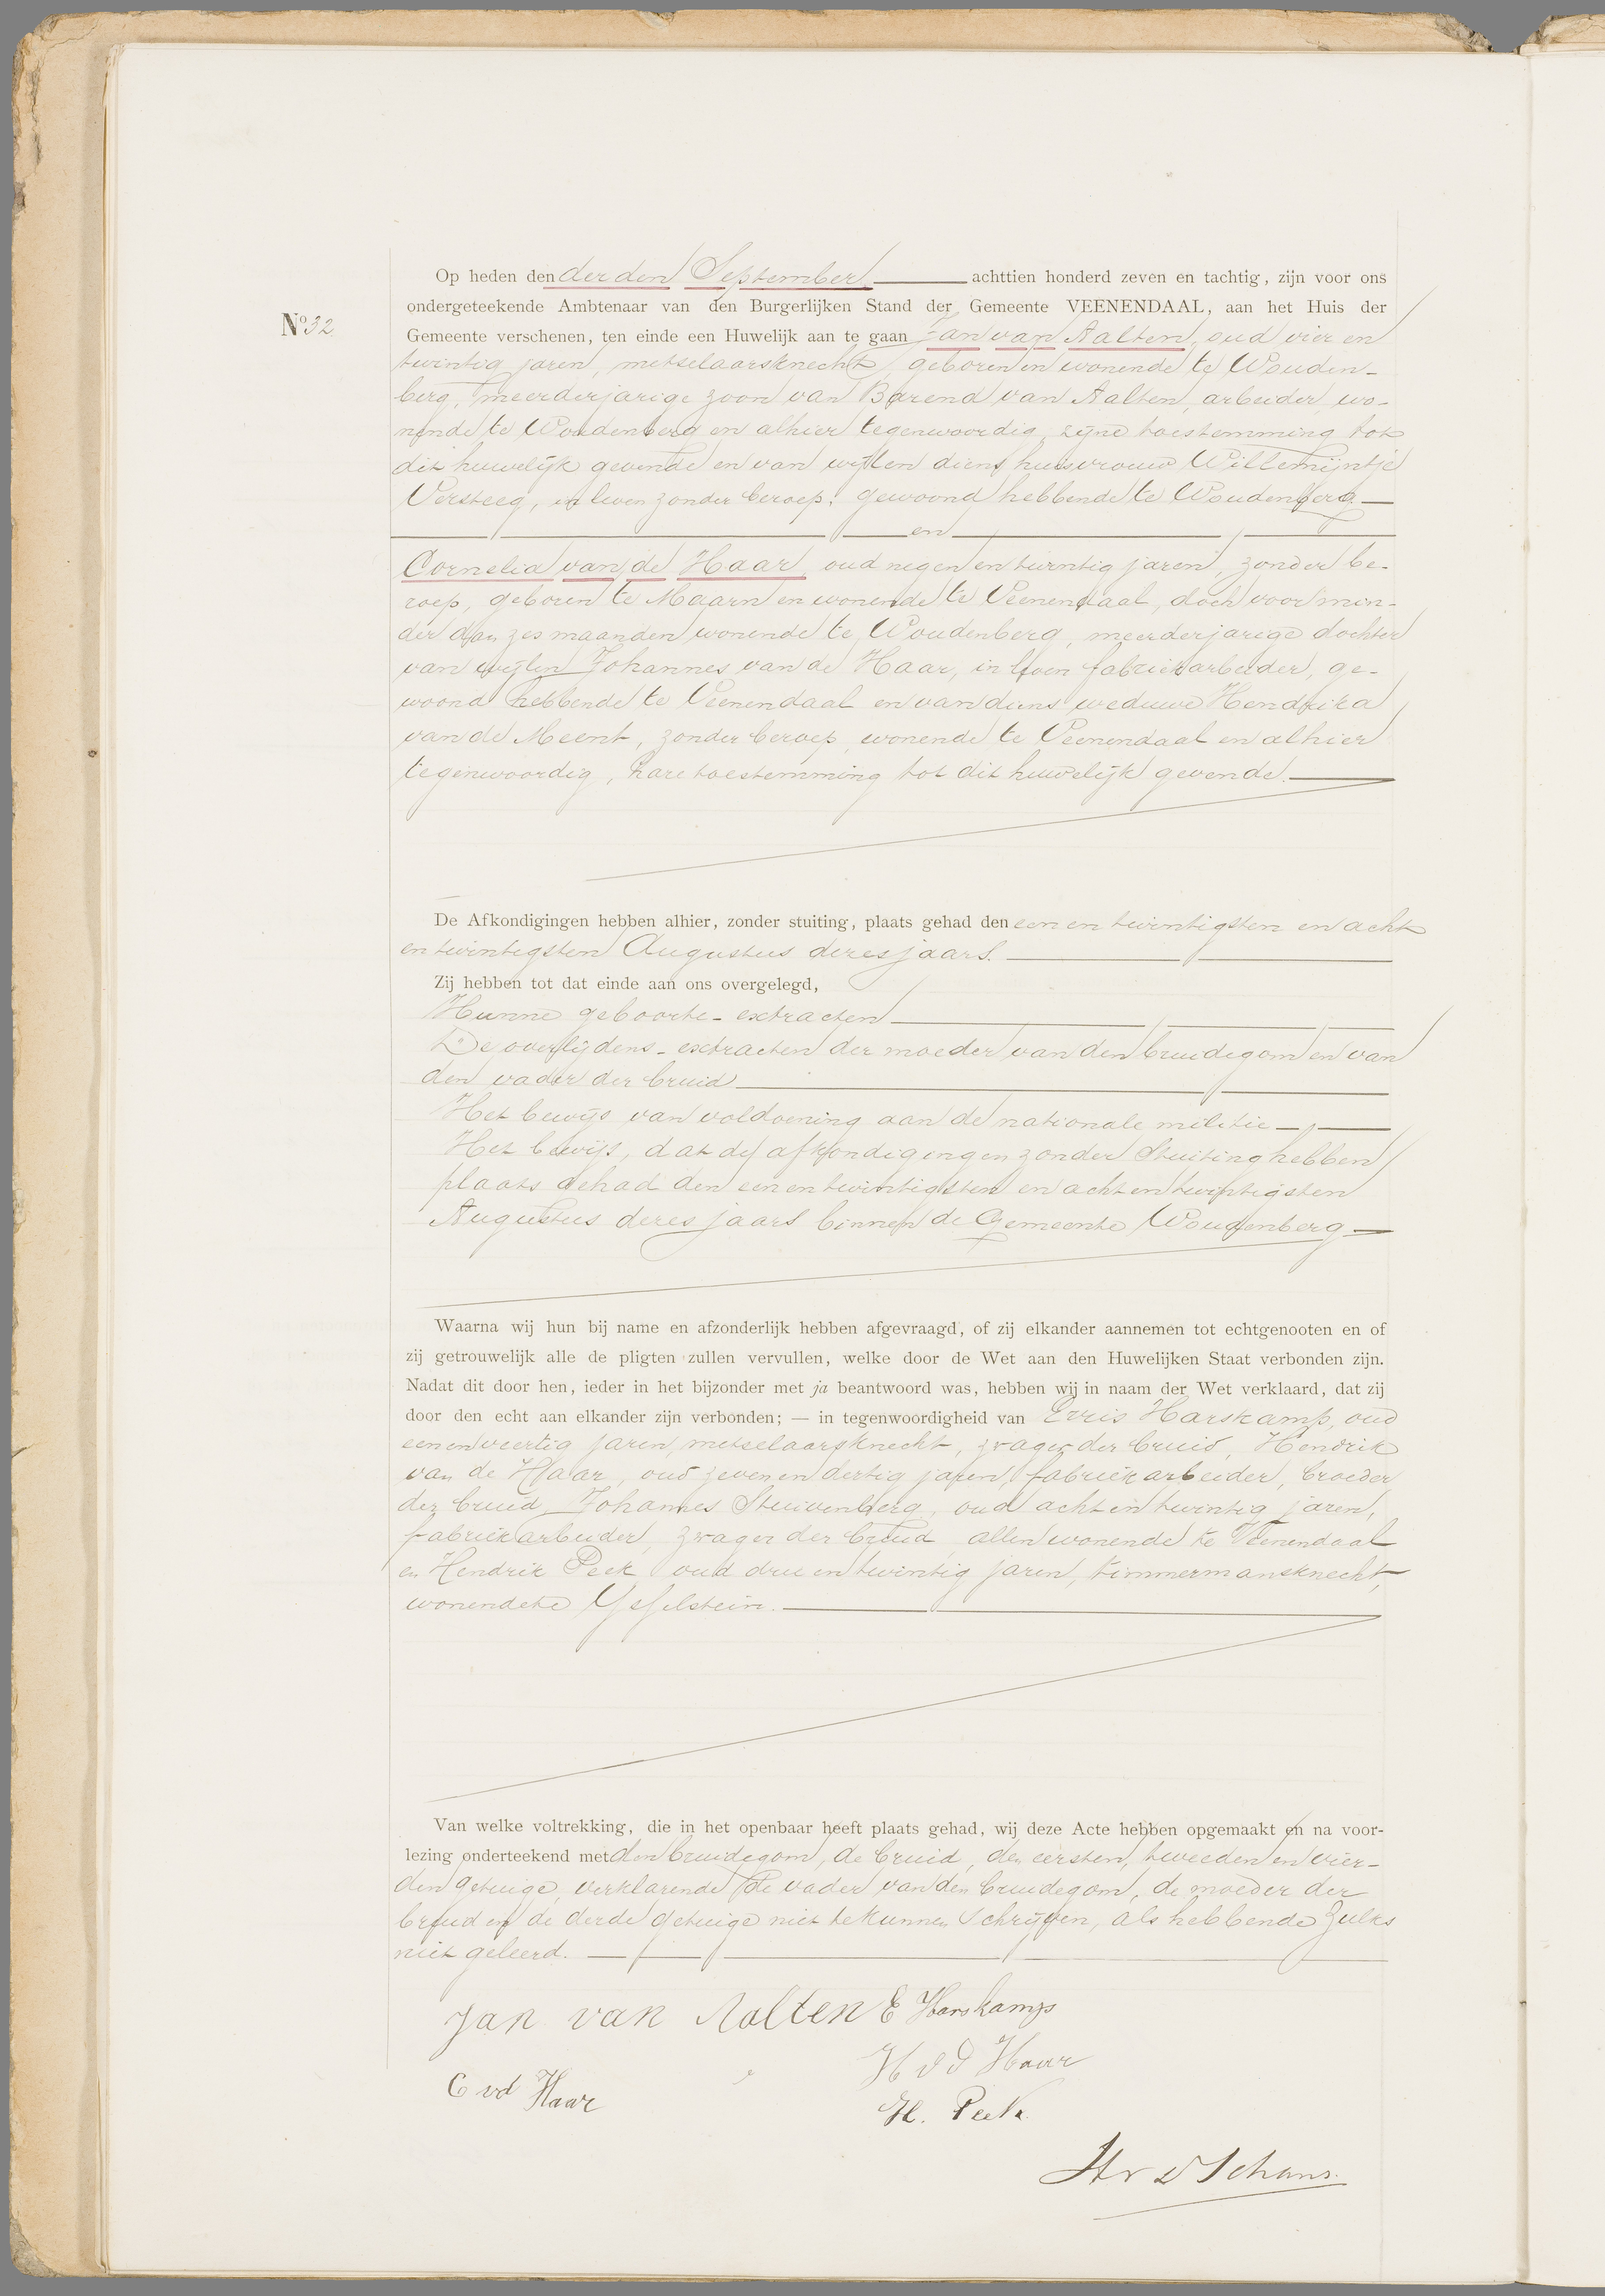 Op heden den derden September achttien honderd zeven en tachtig, zijn voor ons
ondergeteekende Ambtenaar van den Burgerlijken Stand der Gemeente VEENENDAAL, aan het Huis der
No 32
Gemeente verschenen, ten einde een Huwelijk aan te gaan Jan van Aalten, oud vier en
twintig jaren, metselaarsknecht, geboren en wonende te Wouden-
berg, meerderjarige zoon van Barend van Aalten, arbeider, wo-
nende te Woudenberg en alhier tegenwoordig, zijne toestemming tot
dit huwelijk gevende en van wijlen diens huisvrouw Willemijntje
Versteeg, in leven zonder beroep, gewoond hebbende te Woudenberg
en
Cornelia van de Haar, oud negen en twintig jaren, zonder be-
roep, geboren te Maarn en wonende te Veenendaal, doch voor min-
der dan zes maanden wonende te Woudenberg, meerderjarige dochter
van wijlen Johannes van de Haar, in leven fabriekarbeider, ge-
woond hebbende te Veenendaal en van diens weduwe Hendrika
van de Meent, zonder beroep, wonende te Veenendaal en alhier
tegenwoordig, hare toestemming tot dit huwelijk gevende.
De Afkondigingen hebben alhier, zonder stuiting, plaats gehad den een en twintigsten en acht
en twintigsten Augustus dezes jaars.
Zij hebben tot dat einde aan ons overgelegd,
Hunne geboorte-extracten
De overlijdens-extracten der moeder van den bruidegom en van
den vader der bruid
Het bewijs van voldoening aan de nationale militie
Het bewijs, dat de afkondigingen zonder Stuiting hebben
plaats gehad den een en twintigsten en acht en twintigsten
Augustus dezes jaars binnen de Gemeente Woudenberg
Waarna wij hun bij name en afzonderlijk hebben afgevraagd, of zij elkander aannemen tot echtgenooten en of
zij getrouwelijk alle de pligten zullen vervullen, welke door de Wet aan den Huwelijken Staat verbonden zijn.
Nadat dit door hen, ieder in het bijzonder met ja beantwoord was, hebben wij in naam der Wet verklaard, dat zij
door den echt aan elkander zijn verbonden; — in tegenwoordigheid van Evris Harskamp, oud
een en veertig jaren, metselaarsknecht, zwager der bruid, Hendrik
van de Haar, oud zeven en dertig jaren, fabriekarbeider, broeder
der bruid, Johannes Stuivenberg, oud acht en twintig jaren,
fabriekarbeider, zwager der bruid, allen wonende te Veenendaal
en Hendrik Peek oud drie en twintig jaren, timmermansknecht,
wonende te IJsselstein.
Van welke voltrekking, die in het openbaar heeft plaats gehad, wij deze Acte hebben opgemaakt en na voor-
lezing onderteekend met den bruidegom, de bruid, den eersten, tweeden en vier-
den getuige, verklarende de vader van den bruidegom, de moeder der
bruid en de derde getuige niet te kunnen schrijven, als hebbende zulks
niet geleerd.
Jan van Aalten E Harskamp
H v d Haar
C vd Haar
H. Peek
Schans